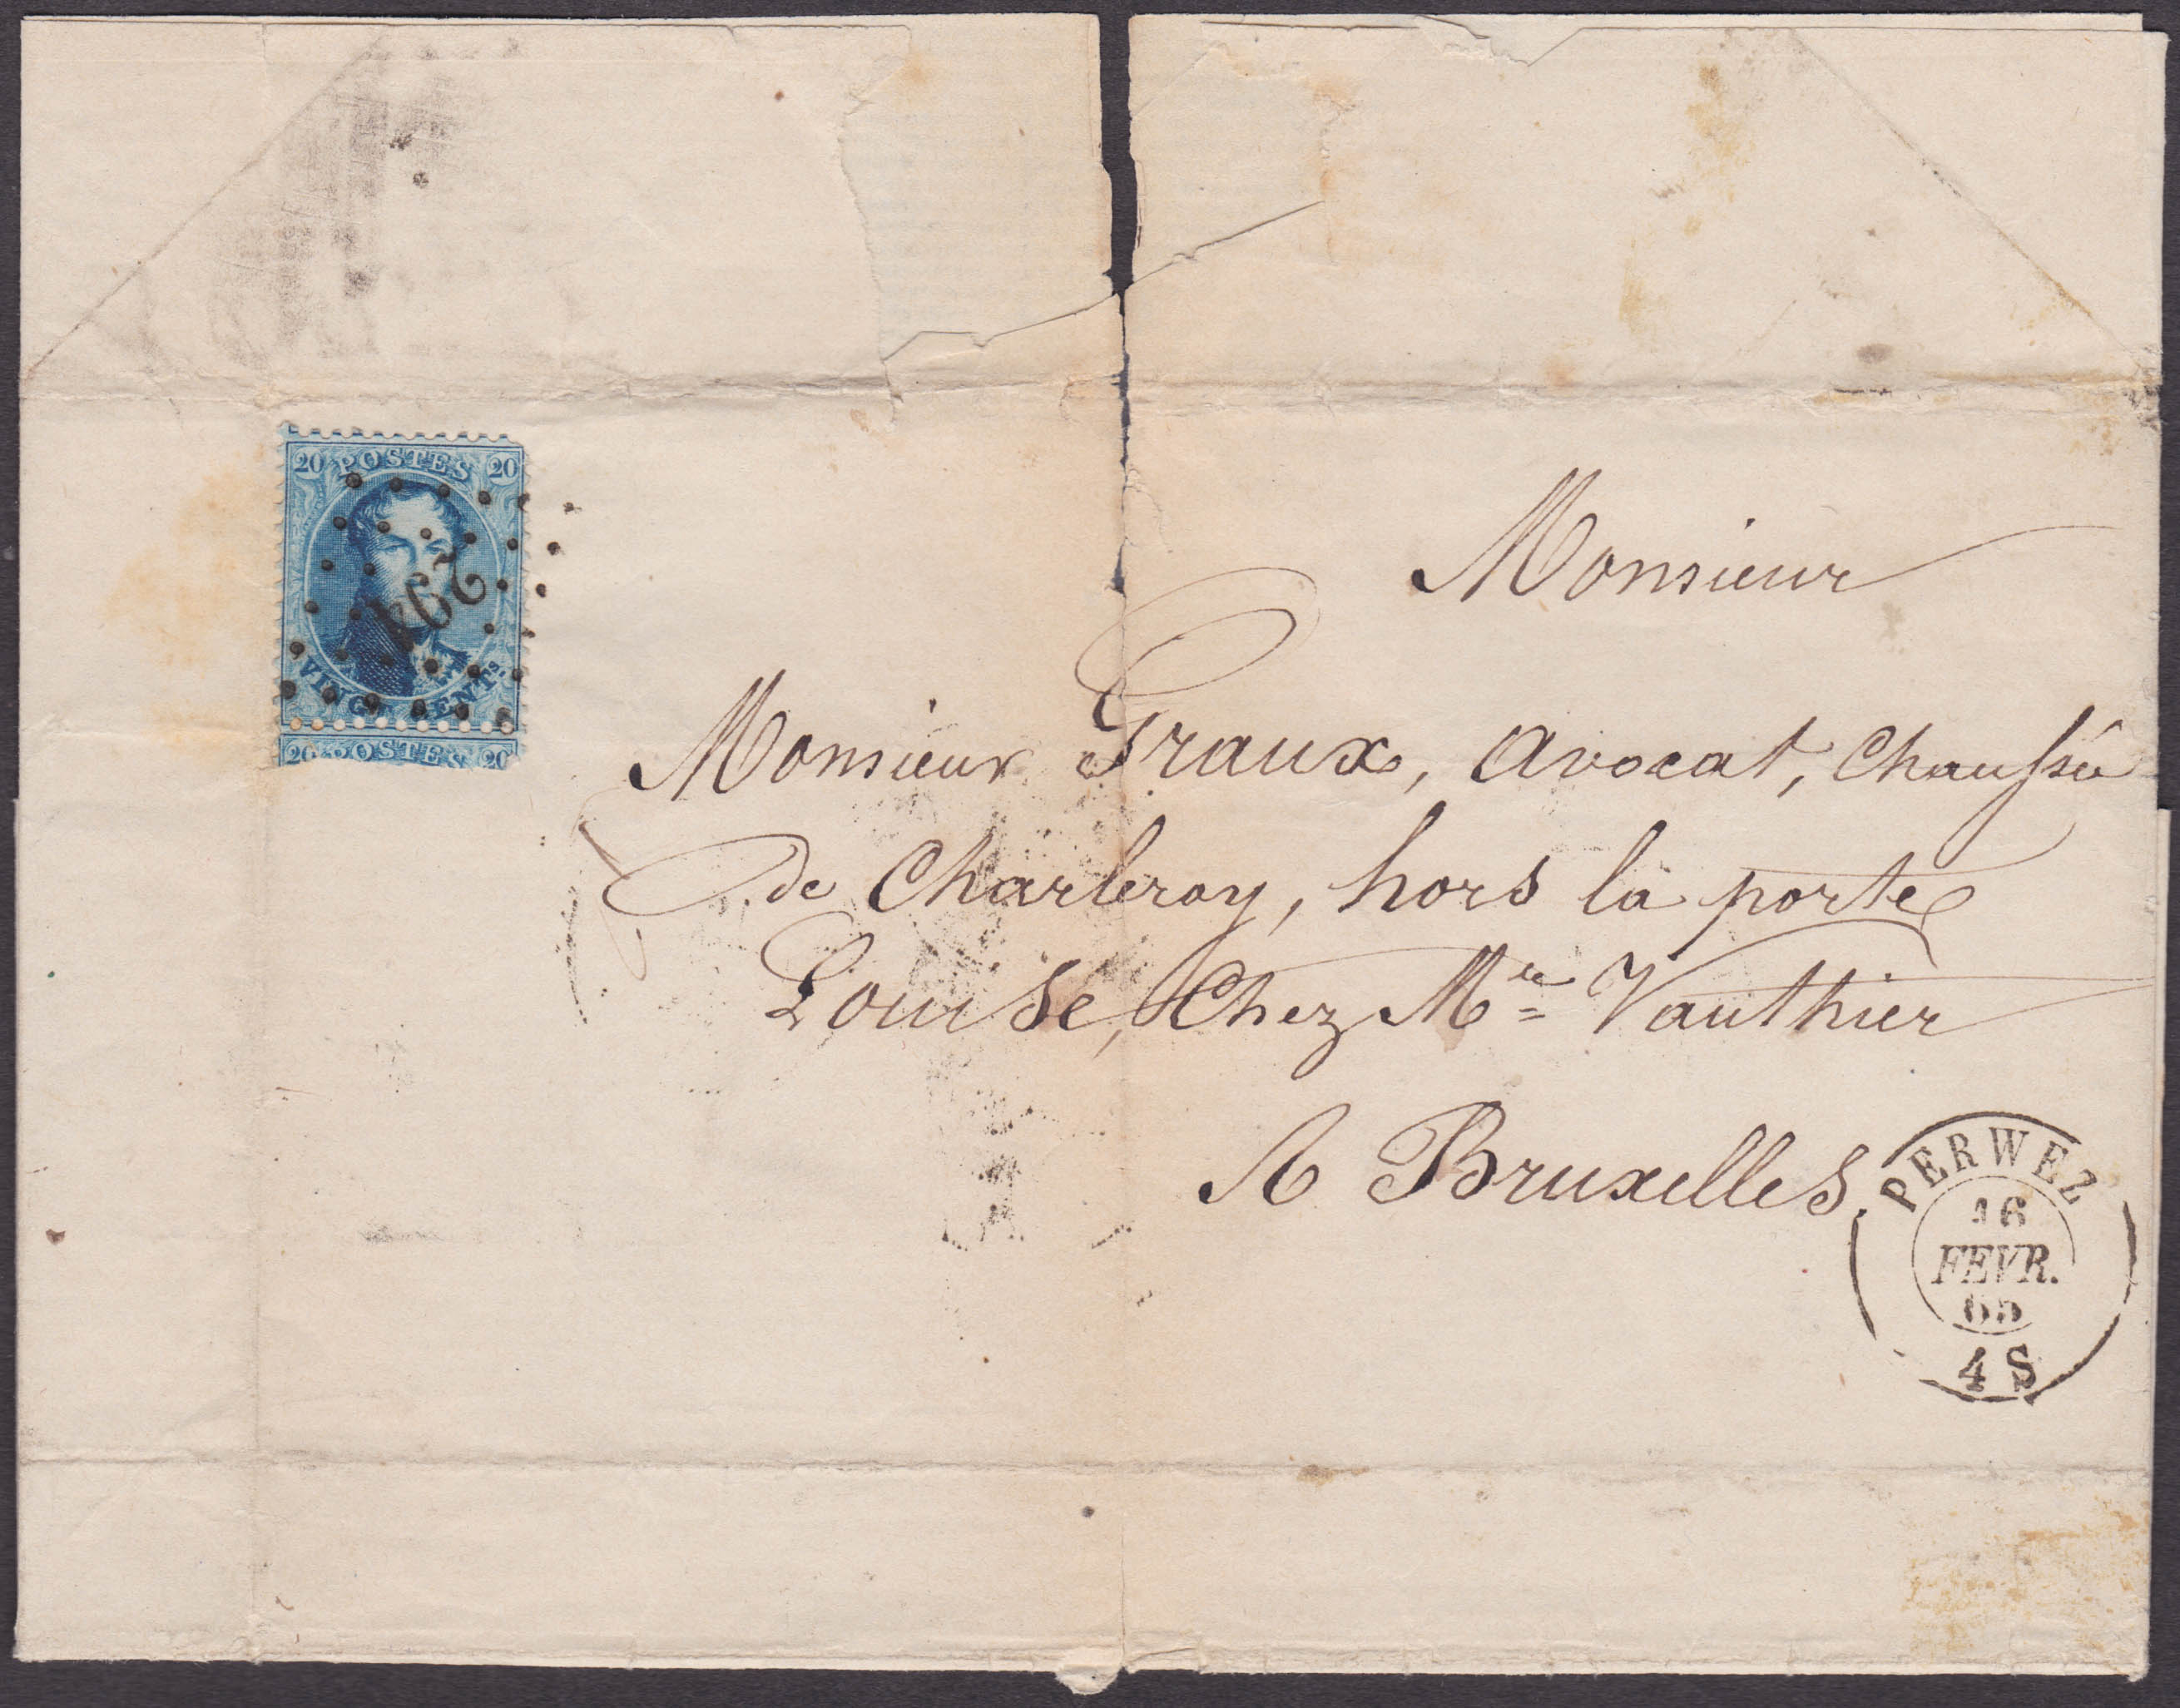 20 POSTES 20
294
VINGT CENTS
20 POSTES 20
Monsieur
Monsieur Graux, avocat, Chaussée
de Charleroy, hors la porte
Louise, Chez Mr Vauthier
A Bruxelles.
PERWEZ
16
FEVR.
65
4 S